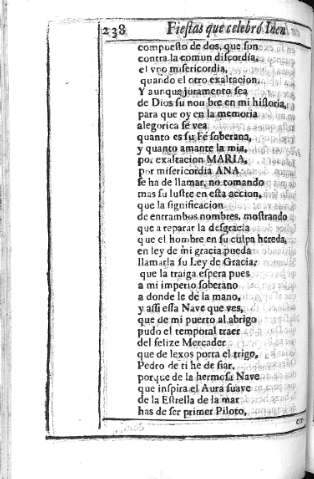 238 Fiestas que celebró
compuesto de dos, que son
contra la comun discordia,
el vno misericordia,
quando el otro exaltacion.
Y aunque juramento sea
de Dios su nombre en mi historia,
para que oy en la memoria
alegorica se vea
quanto es su Fè soberana,
y quanto amante la mia,
por exaltacion MARIA,
por misericordia ANA
se ha de llamar, no tomando
mas su lustre en esta accion,
que la significacion
de entrambos nombres, mostrando
que a reparar la desgracia
que el hombre en su culpa hereda,
en ley de mi gracia pueda
llamarla su Ley de Gracia:
que la traiga espera pues
a mi imperio soberano
a donde le dè la mano,
y assi essa Nave que ves,
que de mi puerto al abrigo
pudo el temporal traer
del felize Mercader
que de lexos porta el trigo,
Pedro de ti he de fiar,
porque de la hermosa Nave
que inspira el Aura suave
de la Estrella de la mar
has de ser primer Piloto,